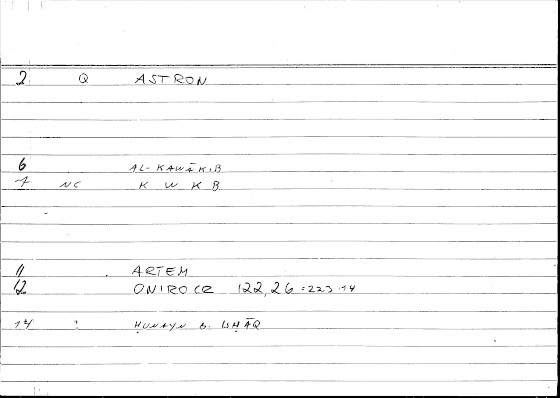 2 Q ASTRON
6 AL-KAWĀKIB
7 NC K W K B
11 ARTEM
12 ONIROCR 122,26 = 223.14
14 : ḤUNAYN B. ISḤĀQ